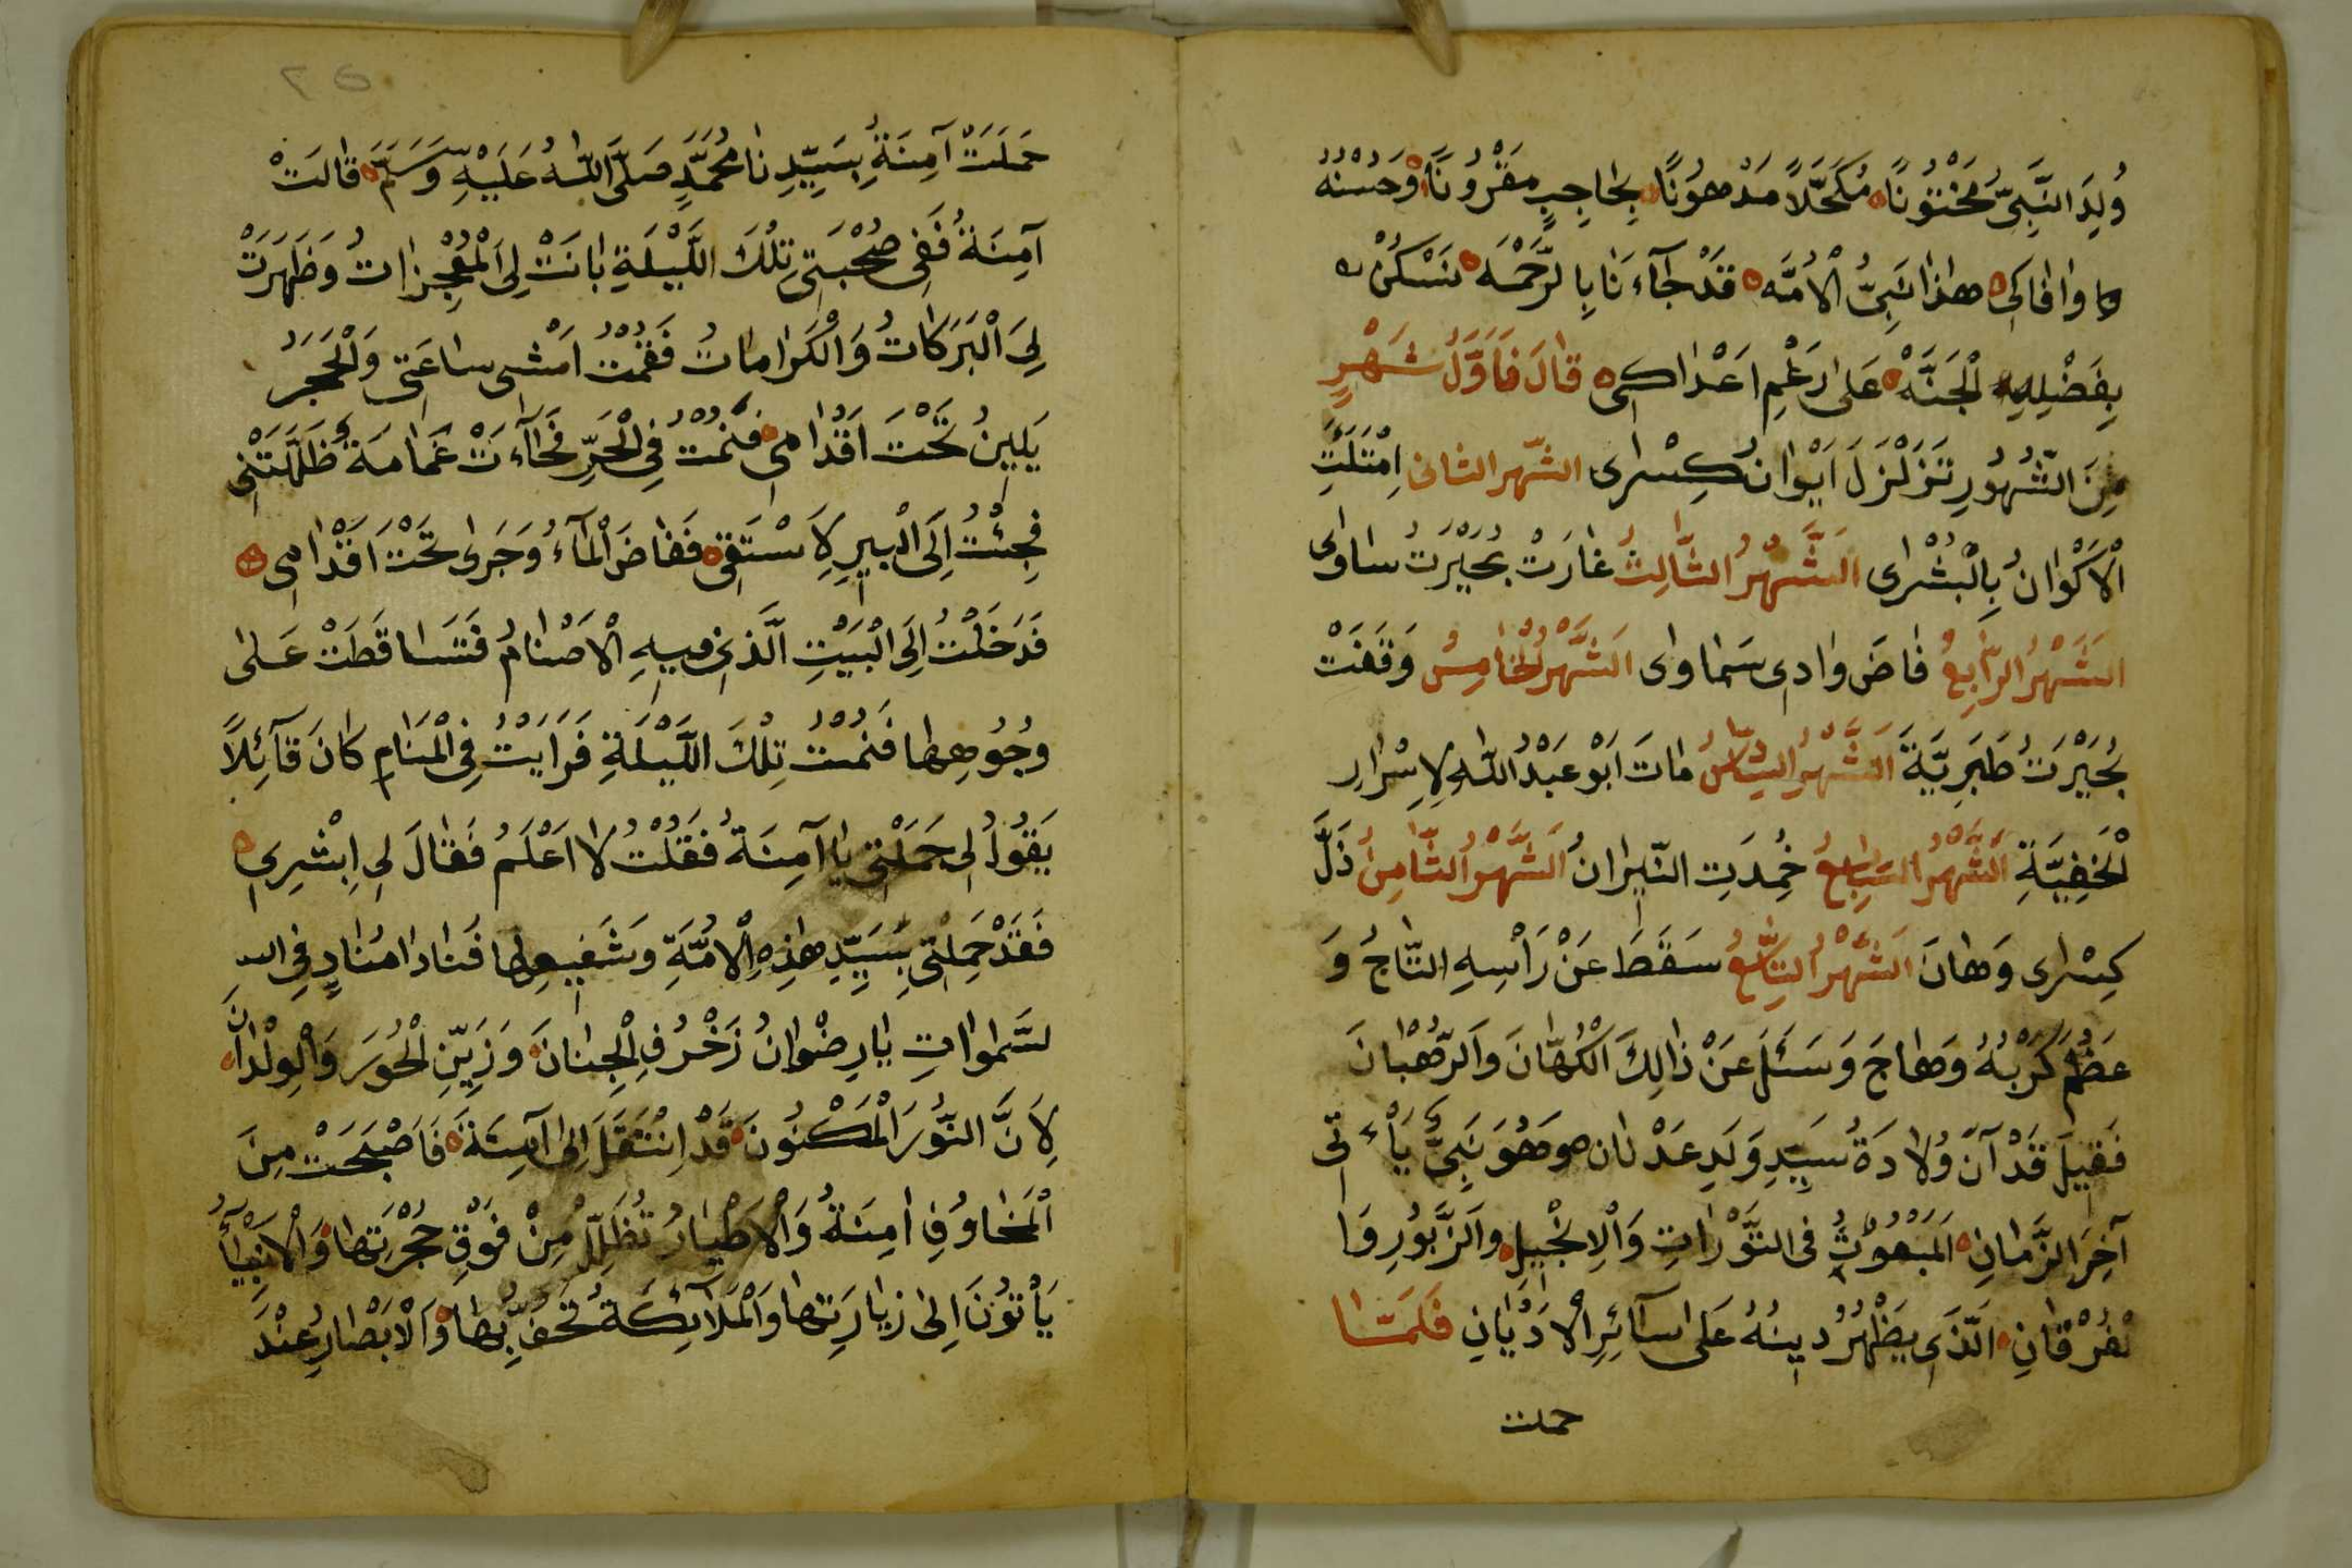 وُلِدَ النَّبِىُّ مَخْتُونًا مُكَحَّلاً مَدْهُونًا بِحَاجِبٍ مَقْرُونًا وَحُسْنُهُ
وافاكى هذا نَبِىُّ الْاُمَّه قَدْ جَآءَنَا بِالرَّحْمَه نَسْكُنْ
بِفَضْلِهِ الْجَنَّهْ عَلٰى رَغْمِ اَعْدَاكِى قَالَ فَاَوَّلُ شَهْرٍ
مِنَ الشُّهُورِ تَزَلْزَلَ اَيْوَانُ كِسْرٰى الشّهر الثانى اِمْتَلَئَتِ
الْاَكْوَانُ بِالْبُشْرٰى اَلشَّهْرُ الثَّالِثُ غَارَتْ بُحَيْرَتُ سَاوٰى
اَلشَّهْرُ الرَّابِعُ فَاضَ وَادِى سَمَاوَاى اَلشَّهْرُ الْخَامِسُ وَقَفَتْ
بُحَيْرَتُ طَبَرِيَّةَ اَلشَّهْرُ السَّادِسُ مَاتَ اَبُو عَبْدُ اللّٰهِ لِاِسْرَارِ
الْخَفِيَّةِ اَلشَّهْرُ السَّابِعُ خُمِدَتِ النِّيرَانُ اَلشَّهْرُ الثَّامِنُ ذَلَّ
كِسْرٰى وَهَانَ اَلشَّهْرُ التَّاسِعُ سَقَطَ عَنْ رَاْسِهِ التَّاجُ وَ
عَظُمَ كَرْبُهُ وَهَاجَ وَسَئَلَ عَنْ ذَالِكَ الْكُهَّانَ وَالرُّهْبَانَ
فَقِيلَ قَدْ آنَ وُلَادَةُ سَيِّدِ وَلَدِ عَدْنَان هو وَهُوَ نَبِىٌّ يَأْتِى
آخِرَ الزَّمَانِ اَلْمَبْعُوثُ فِى التَّوْرَاتِ وَالْاِنْجِيلِ وَالزَّبُورِ وَا
لْفُرْقَانِ الَّذَى يَظْهَرُ دِينُهُ عَلَى سَآئِرِ الْاَدْيَانِ فَلَمَّا
حملت
حَمَلَتْ آمِنَةُ بِسَيِّدِنَا مُحَمَّدٍ صَلَّى اللّٰهُ عَلَيْهِ وَسَلَّمَ قَالَتْ
آمِنَةُ فَفِى صُحْبَتِى تِلْكَ اللَّيْلَةِ بَانَتْ لِىَ الْمُعْجِزَاتُ وَظَهَرَتْ
لِىَ الْبَرَكَاتُ وَالْكَرَامَاتُ فَقُمْتُ اَمْشِى سَاعَتِى وَالْحَجَرُ
يَلِينُ تَحْتَ اَقْدَامِى فَنُمْتُ فِى الْحَرِّ فَجَآءَتْ غَمَامَةٌ ظَلَّلَتْنِى
فَجِئْتُ اِلَى الْبِيرِ لِاَسْتَقِى فَفَاضَ الْمَآءُ وَجَرٰى تَحْتَ اَقْدَامِى
فَدَخَلْتُ اِلَى الْبَيْتِ الَّذِى فِيهِ الْاَصْنَامُ فَتَسَاقَطَتْ عَلٰى
وُجُوهِهَا فَنُمْتُ تِلْكَ اللَّيْلَةِ فَرَاَيْتُ فِى الْمَنَامِ كَانَ قَآئِلاً
يَقُولُ لِى حَمَلْتِى يَا آمِنَةُ فَقُلْتُ لَا اَعْلَمُ فَقَالَ لِى اِبْشِرِى
فَقَدْ حَمِلْتِى بِسَيِّدِ هٰذِهِ الْاُمَّةِ وَشَفِيعِهَا فَنَادَا مُنَادٍ فِى
لسَّمٰوَاتِ يَا رِضْوَانُ زَخْرُفِ الْجِنَانَ وَزَيِّنِ الْحُورَ وَالْوِلْدَانَ
لِاَنَّ النُّورَ الْمَكْنُونَ قَدْ اِنْتَقَلَ اِلٰى آمِنَةَ فَاَصْبَحَتْ مِنَ
الْمَخَاوُفِ اٰمِنَةُ وَالْاَطْيَارُ تُظَلِّلُ مِنْ فَوْقِ حُجْرَتِهَا وَالْاَنْبِيَآءُ
يَأْتُونَ اِلٰى زِيَارَتِهَا وَالْمَلَآئِكَةُ تَحُفُّ بِهَا وَالْاَبْصَارُ عِنْدَ